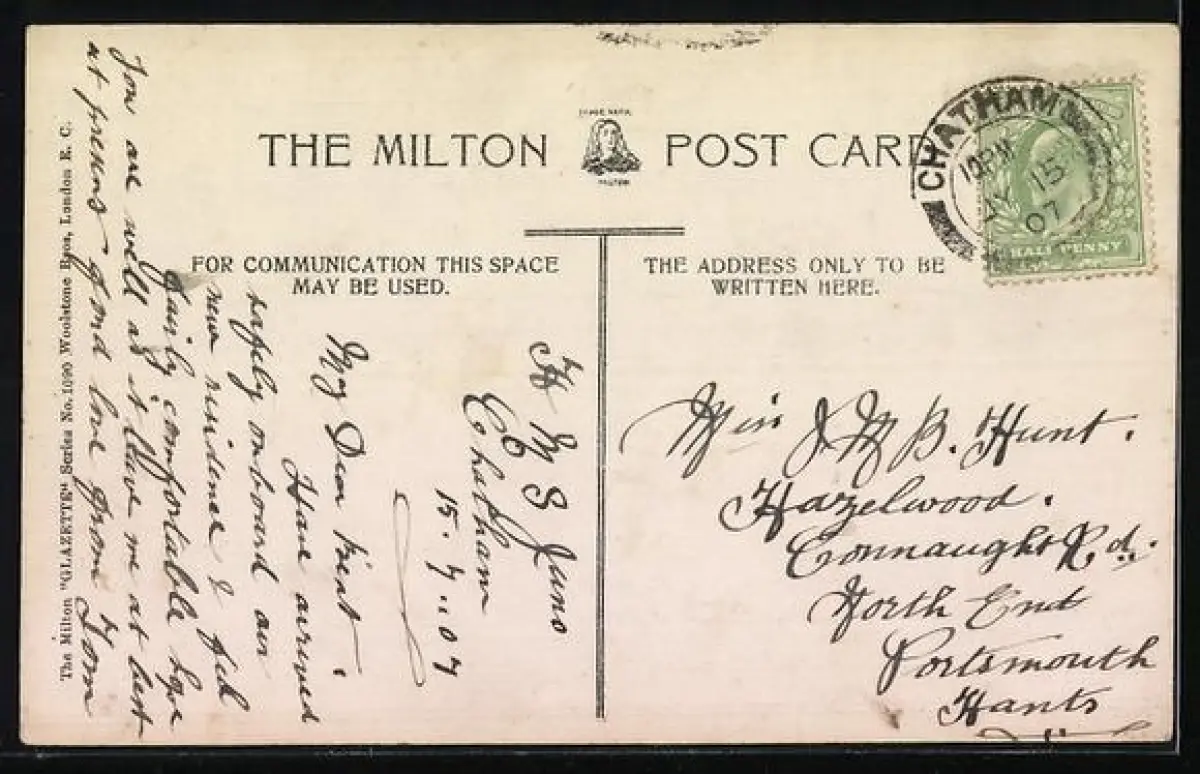 THE MILTON POST CARD
TRADE MARK
MILTON
CHATHAM
10 PM
15
07
HALF PENNY
FOR COMMUNICATION THIS SPACE
MAY BE USED.
THE ADDRESS ONLY TO BE
WRITTEN HERE.
H M S Juno
Chatham
15. 7.. 07
My Dear
Have arrived
safely onboard our
new residence & feel
fairly comfortable hope
You are well as it leave me at best
at present fond love from Tom
Miss J M B. Hunt.
Hazelwood.
Connaught Rd.
North End
Portsmouth
Hants
The Milton "GLAZETTE" Series No. 1090 Woolstone Bros, London E. C.